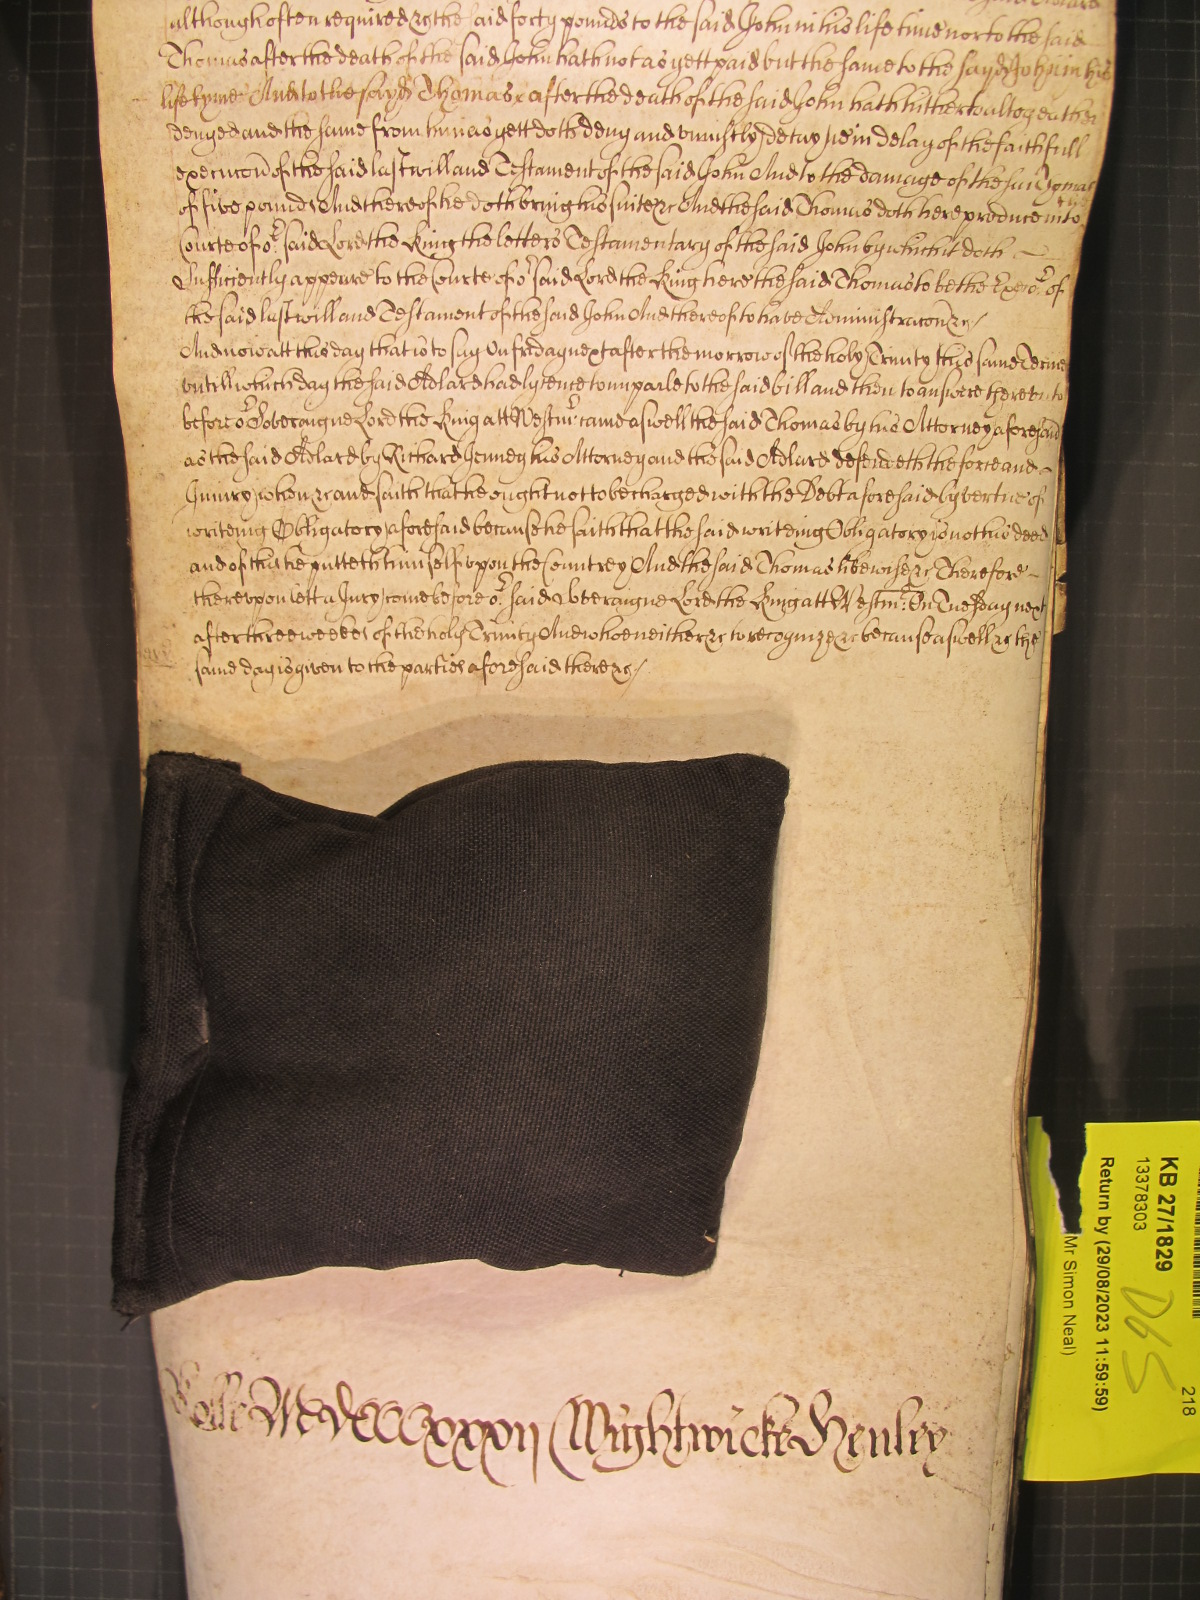 although often required &c the said forty pounds to the said John in his life time nor to the said
Thomas after the death of the said John hath not as yett paid but the same to the sayd John in his
life tyme And to the sayd Thomas after the death of the said John hath hitherto altogeather
denyed and the same from him as yett doth deny and uniustly detayne in delay of the faithfull
execucon of the said last will and Testament of the said John And to the damage of the said Thomas
of five pounds And thereof he doth bring his suite &c And the said Thomas doth here produce into the
Courte of or said Lord the King the letters Testamentary of the said John by which it doth
sufficiently appeare to the Courte of or said Lord the King here the said Thomas to be the Execr of
the said last will and Testament of the said John And thereof to have Administracon &c /
And now att this day that is to say On fryday next after the morrow of the holy Trinity this same Terme
untill which day the said Adlard had lycence to imparle to the said bill and then to answere thereunto
before or Soveraigne Lord the King att Westmr came aswell the said Thomas by his Attorney aforesaid
as the said Adlard by Richard Jenney his Attorney and the said Adlard defendeth the force and
Iniury when &c and saith that he ought not to be charged with the Debt aforesaid by vertue of
writeing Obligatory aforesaid because he saith that the said writeing Obligatory is not his deed
and of that he putteth himself upon the Countrey And the said Thomas likewise &c Therefore
thereupon lett a Jury come before or said Soveraigne Lord the King att Westmr On Tuesday next
after three weekes of the holy Trinity And who neither &c to recognize &c because aswell &c the
same day is given to the parties aforesaid there &c /
Rolle MdCCCxxxij Wightwicke Henley
KB 27/1829
13378303
Return by (29/08/2023 11:59:59)
Mr Simon Neal)
D65
218